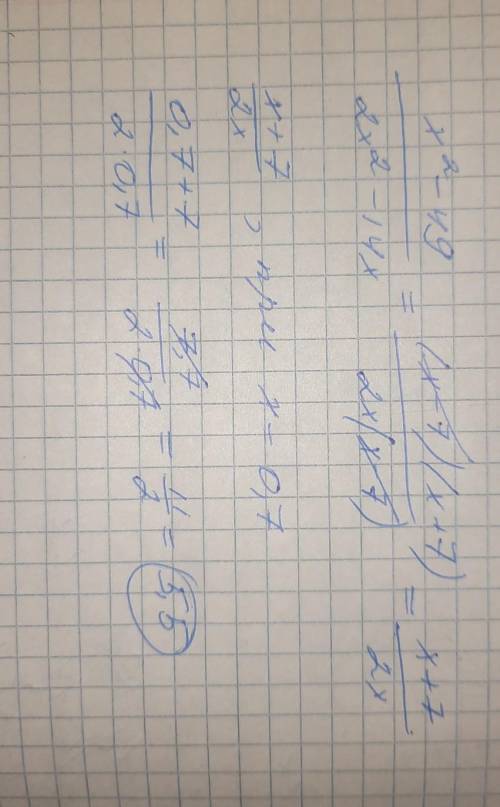 x² - 49 / 2x² - 14x = (x-7)(x+7) / 2x(x-7) = x+7 / 2x
x+7 / 2x , при x = 0,7
0,7+7 / 2·0,7 = 7,7 / 2·0,7 = 11 / 2 = 5,5